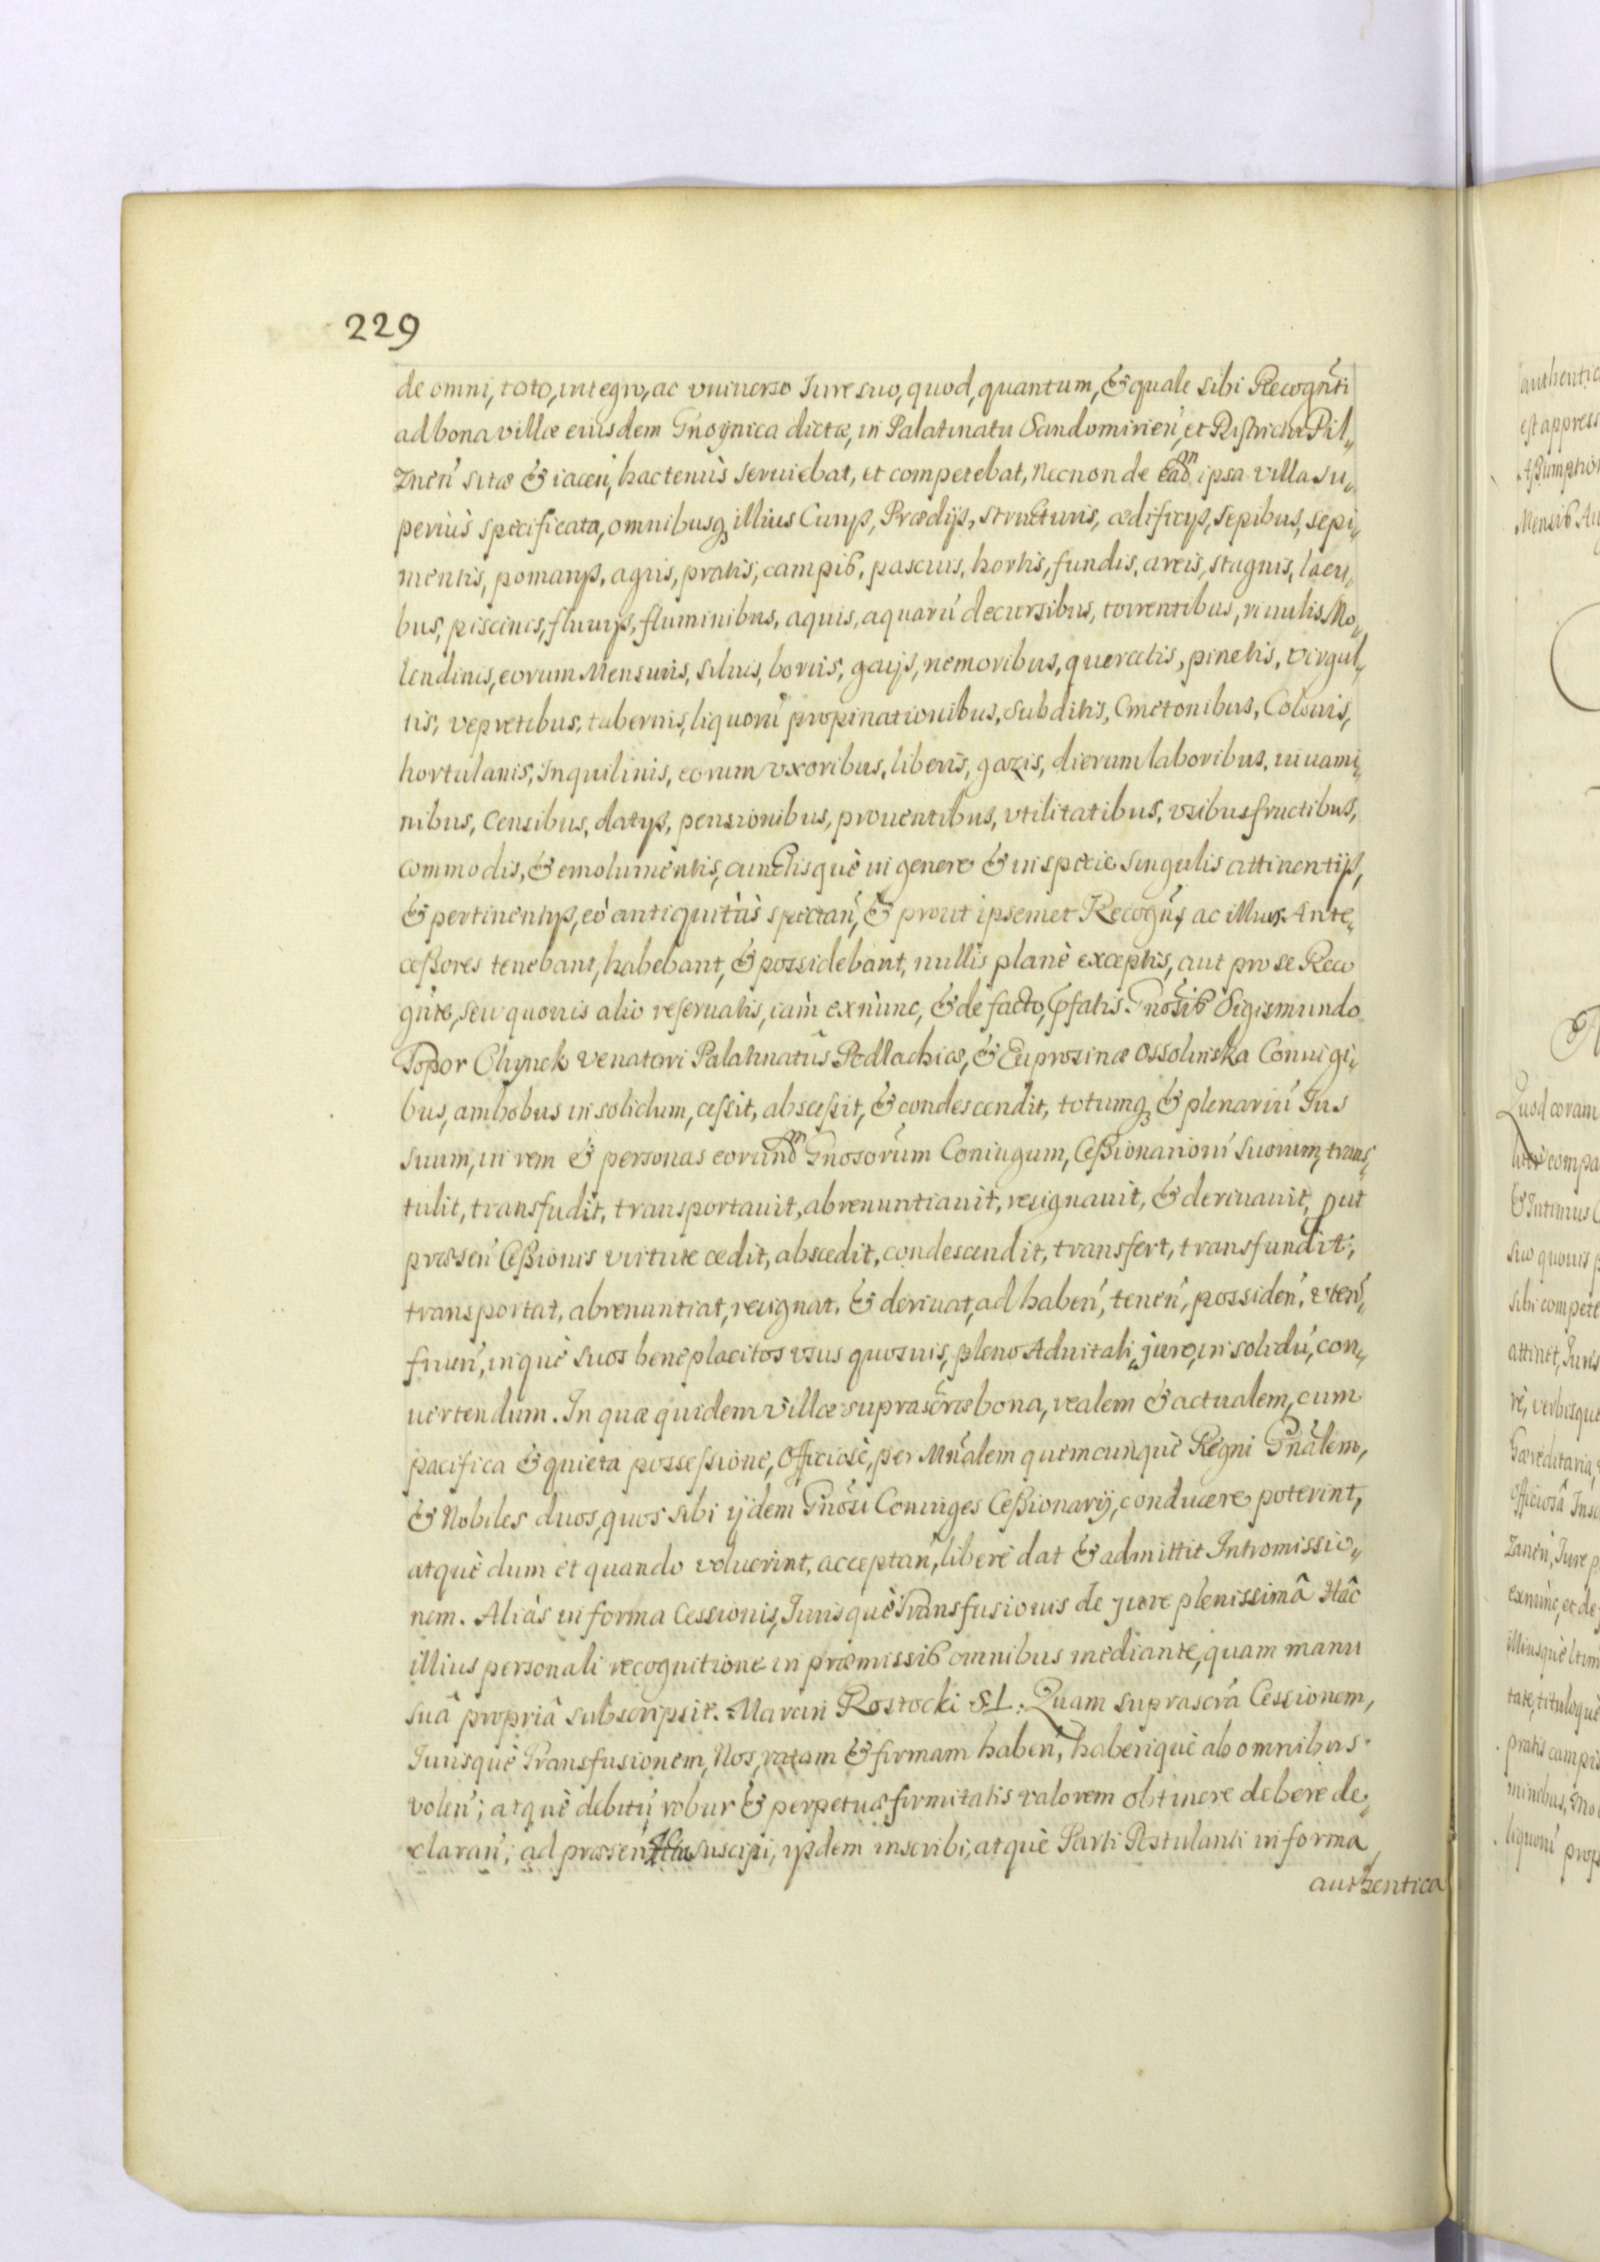 229
de omni, toto, integro, ac vniuerso Iure suo, quod, quantum, & quale sibi Recogn̄ti
ad bona villæ eiusdem Gnoynica dictæ, in Palatinatu Sandomirień, et Districtu Pil„
Znẽń sitæ & iaceń, hactenùs seruiebat, et competebat, Necnon de eadm ipsa villa su„
periùs specificata, omnibusq; illius Curijs, Prædijs, structuris, ædificijs, sepibus, sepi„
mentis, pomarijs, agris, pratis, campis, pascuis, hortis, fundis, areis, stagnis, lacu„
bus, piscinis, fluuijs, fluminibus, aquis, aquarú decursibus, torrentibus, riuulis, Mo„
lendinis, eorum Mensuris, siluis, borris, gaijs, nemoribus, quercetis, pinetis, virgul„
tis, vepretibus, tabernis, liquorú propinationibus, Subditis, Cmetonibus, Colonis,
hortulanis, Inquilinis, eorum vxoribus, liberis, gazis, dierum laboribus, iuuami„
nibus, Censibus, datijs, pensionibus, prouentibus, vtilitatibus, vsibusfructibus,
commodis, & emolumentis, cunctisquè in genere & in specie singulis attinentijs,
& pertinentijs, eò antiquitùs spectań, & prout ipsemet Recogńs, ac illius Ante„
ceßores tenebant, habebant, & possidebant, nullis planè exceptis, aut pro se Reco
gńte, seu quouis alio reseruatis, iàm exnùnc, & de facto, pfatis Gnosis Sigismundo
Topor Chynek Venatori Palatinatûs Podlachiæ, & Euprosinæ Ossolinska Coniugi„
bus, ambobus in solidum, ceßit, abscessit, & condescendit, totumq; & plenariú Ius
suum, in rem & personas eorundm Gnosorum Coniugum, Ceßionariorú suorum, trans„
tulit, transfudit, transportauit, abrenuntiauit, resignauit, & deriuauit, put
præseń Ceßionis virtute cedit, abscedit, condescendit, transfert, transfundit,
transportat, abrenuntiat, resignat, & deriuat, ad habeń, teneń, possideń, vteń„
frueń, inquè suos beneplacitos vsus quosuis, pleno Aduitali, jure, in solidú, con„
uertendum. In quæ quidem Villæ suprascr̃æ bona, realem & actualem, cum
pacifica & quieta possessione, Officiosè, per Mńalem quemcunquè Regni Gńalem,
& Nobiles duos, quos sibi ijdem Gnosi Coniuges Ceßionarij, conducere poterint,
atquè dum et quando voluerint, acceptań, liberè dat & admittit Intromissio„
nem. Aliàs in forma Cessionis, Iurisquè Transfusionis de jure plenissimâ Hâc
illius personali recognitione in præmissis omnibus mediante, quam manu
suâ propriâ subscripsit. Marcin Rostocki SL. Quam suprascr̃ā Cessionem,
Iurisquè Transfusionem, Nos, ratam & firmam habeń, haberiquè ab omnibus
voleń; atquè debitú robur & perpetuæ firmitatis valorem obtinere debere de„
clarań; ad præseń Acta suscipi, ijsdem inscribi, atquè Parti Postulanti in forma
authentica
authentica
est appress
Aßumption
Mensis Au
Quod coram
compa
& Intimus
suo quouis p
sibi compete
attinet, Iuris
rè, verbisquè
hæreditaria,
Officiosâ
Zanẽń, Iure p
exnùnc, et de
illiusquè
tate, tituloquè
pratis campis
minibus,
liquorú prop